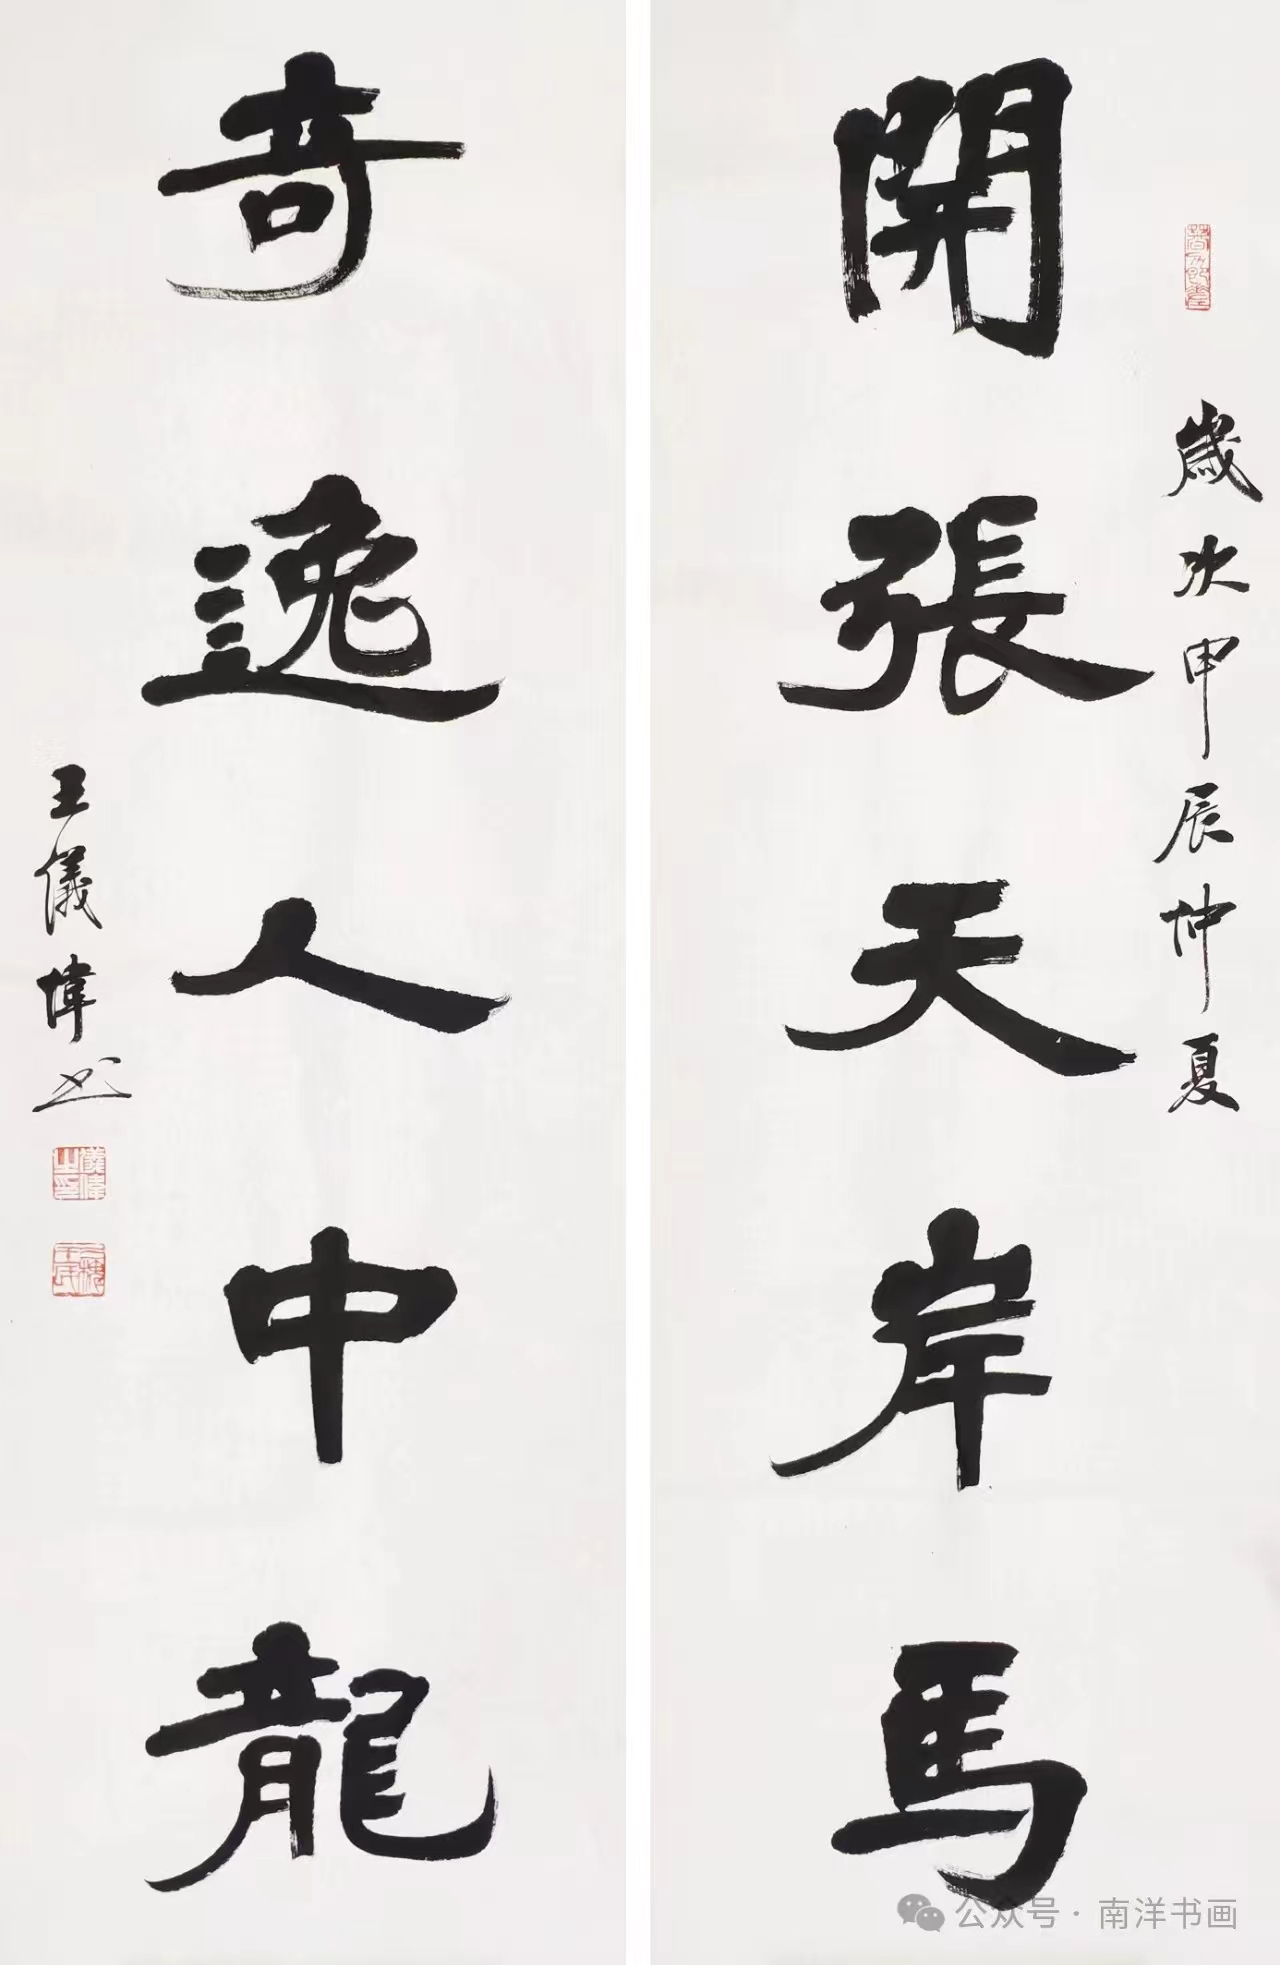 歲次甲辰仲夏
開張天岸馬
奇逸人中龍
王儀偉书
儀偉之印
公众号·南洋书画